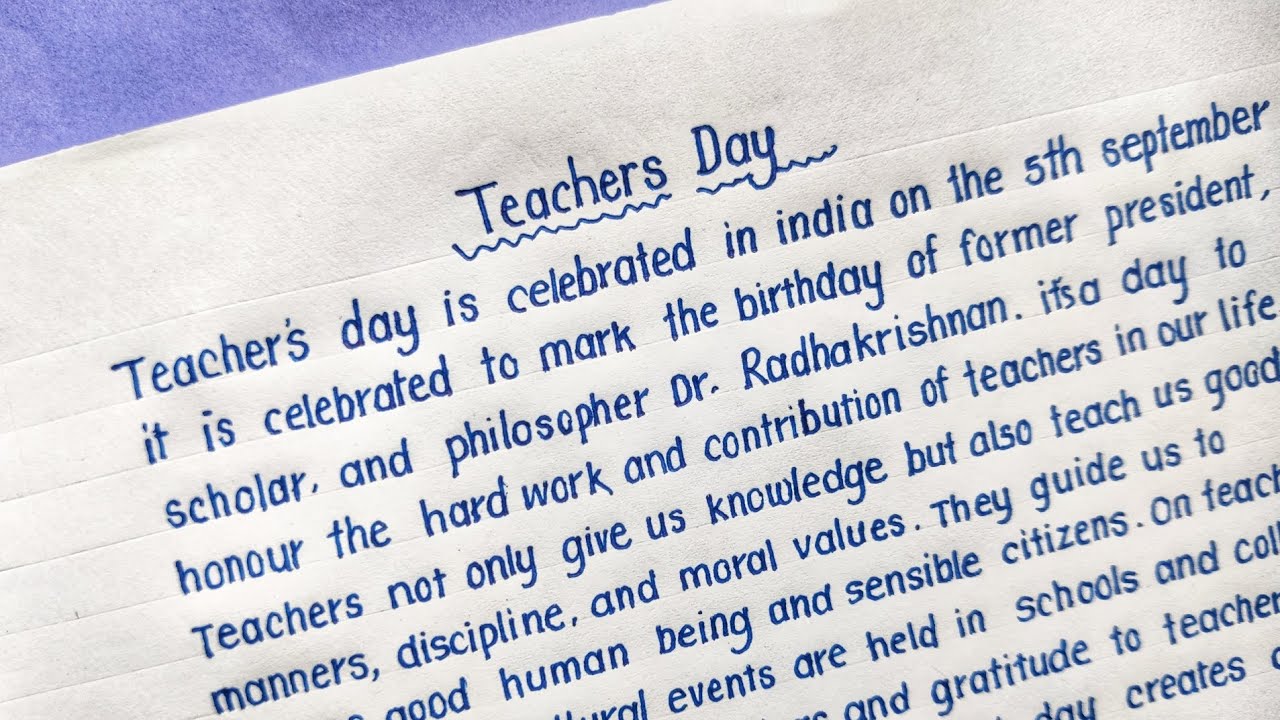 Teachers Day
Teacher's day is celebrated in india on the 5th september
it is celebrated to mark the birthday of former president,
scholar, and philosopher Dr. Radhakrishnan. it's a day to
honour the hard work and contribution of teachers in our life
Teachers not only give us knowledge but also teach us good
manners, discipline, and moral values. They guide us to
good human being and sensible citizens. On
events are held in schools and
and gratitude to
day creates